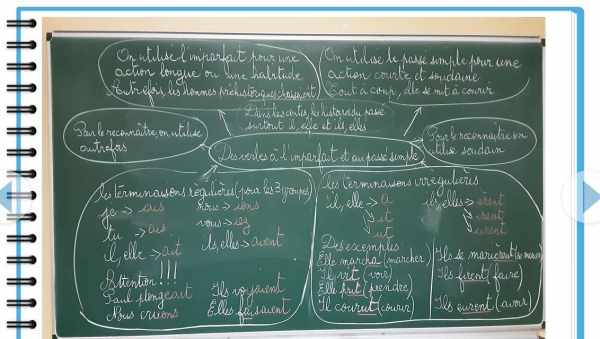 On utilise l'imparfait pour une
action longue ou une habitude
Autrefois, les hommes préhistoriques chassaient
On utilise le passé simple pour une
action courte et soudaine
Tout à coup, elle se mit à courir.
Dans les contes, les histoires du passé
surtout il, elle et ils, elles
Pour le reconnaître, on utilise
autrefois
Pour le reconnaître on
utilise soudain
Des verbes à l'imparfait et au passé simple
les terminaisons régulières (pour les 3 groupes)
je -> ais
tu -> ais
il, elle -> ait
nous -> ions
vous -> iez
ils, elles -> aient
Attention !!!
Paul plongeait
Nous criions
Ils voyaient
Elles faisaient
les terminaisons irrégulières
il, elle -> a
-> it
-> ut
ils, elles -> èrent
-> irent
-> urent
Des exemples
Elle marcha (marcher)
Il vit (voir)
Elle prit (prendre)
Il courut (courir)
Ils se marièrent (se marier)
Ils firent (faire)
Ils eurent (avoir)